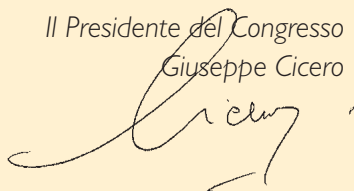 Il Presidente del Congresso
Giuseppe Cicero
Cicero